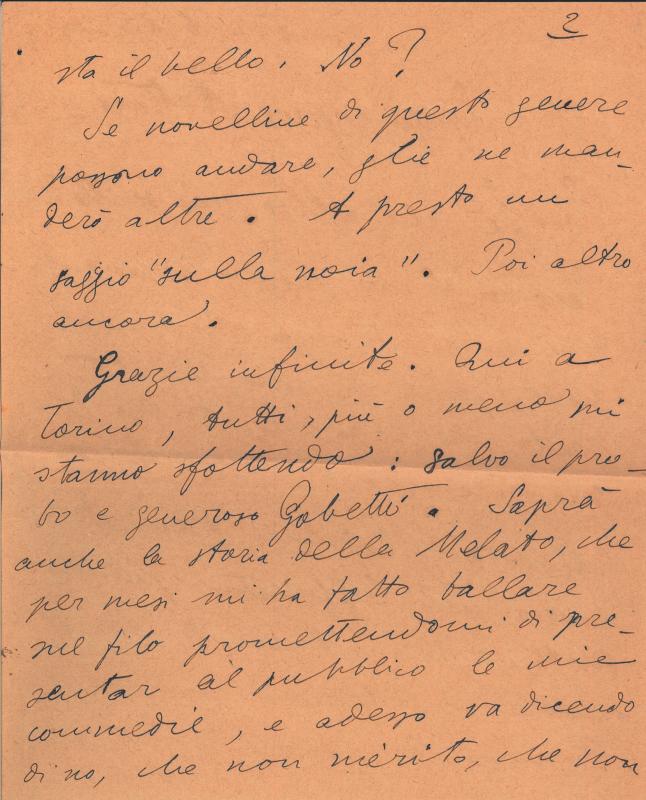 2
sta il bello. No?
Se novelline di questo genere
possono andare, glie ne man-
derò altre. A presto un
saggio "sulla noia". Poi altro
ancora.
Grazie infinite. Qui a
Torino, tutti, più o meno mi
stanno sfottendo: salvo il pro-
bo e generoso Gobetti. Saprà
anche la storia della Melato, che
per mesi mi ha fatto ballare
sul filo promettendomi di pre-
sentar al pubblico le mie
commedie, e adesso va dicendo
di no, che non mèrito, che non